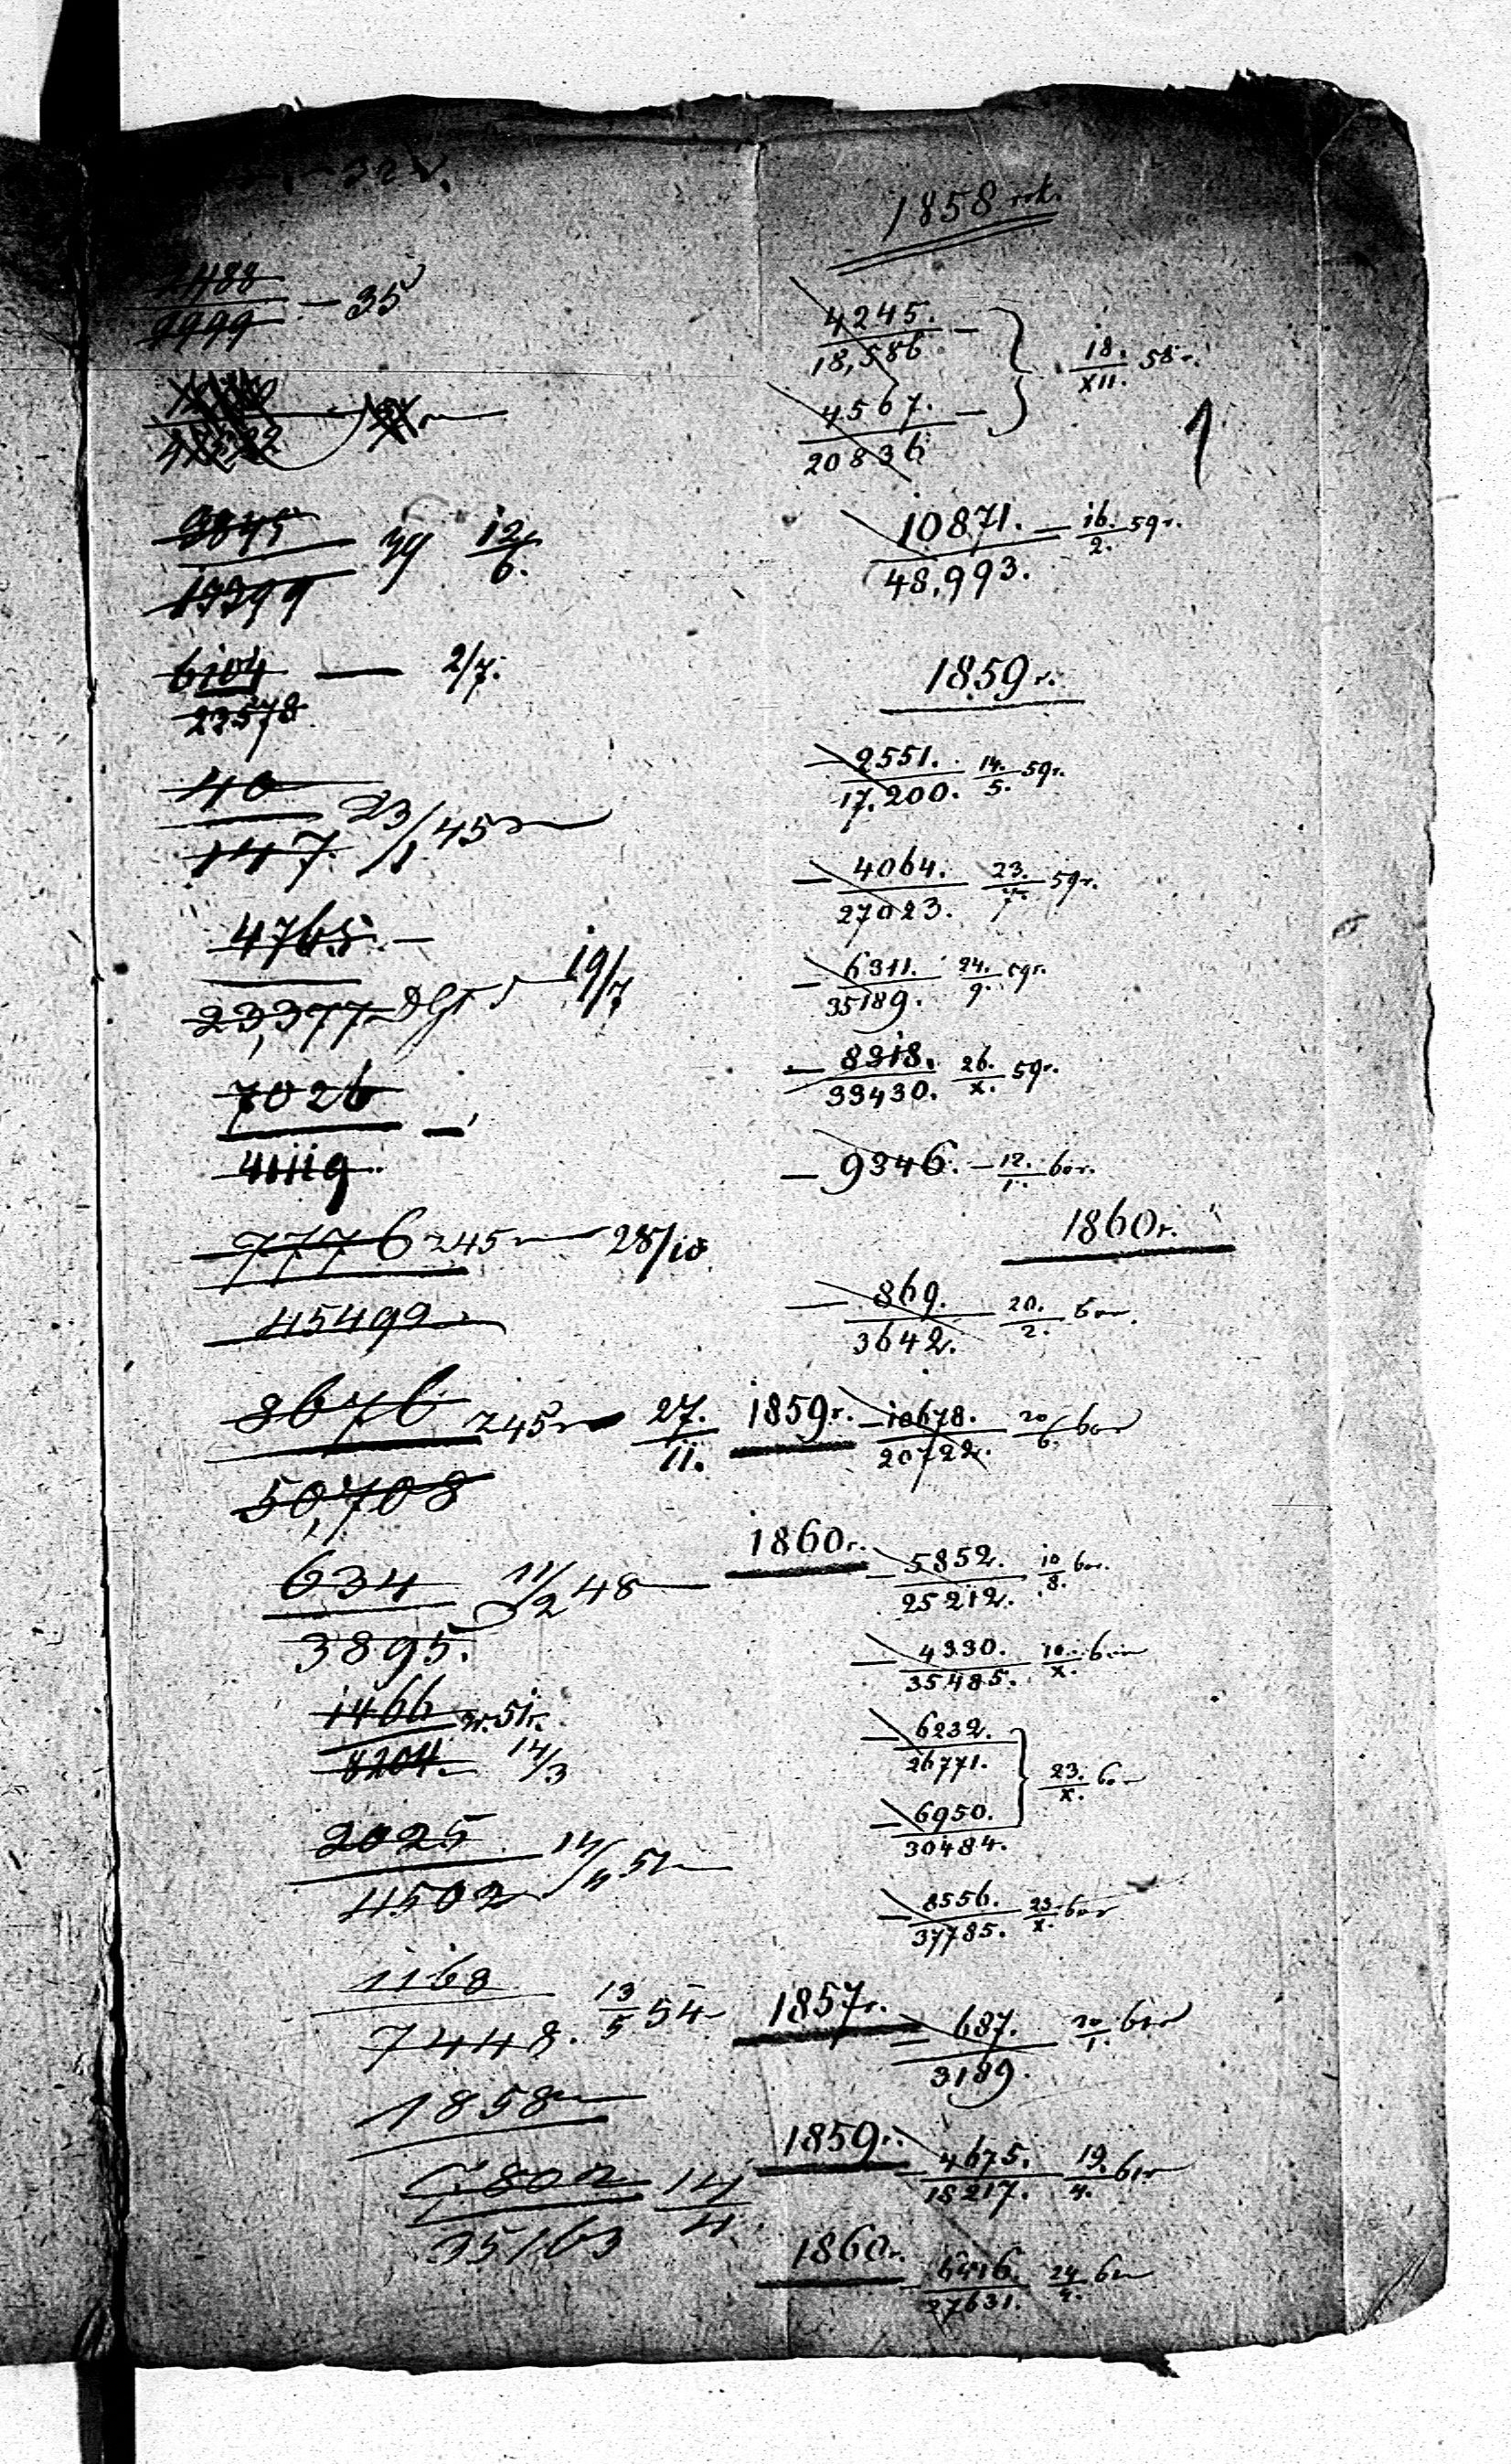 2488
9999 — 35
9845
19399 39 12/6.
6104 — 2/7.
23578
40
147. 23/1 45
4765. —
23,377 19/7
7026 —
41119
7776 245 28/10
45499
8676 245 27./11.
50,708
634 11/2 48
3895.
1466 51r.
8204. 14/3
2025
4502 51
1168
7448. 13/5 54
1858
35163 14/4
1858 rok.
4245. —
18,586
4567. —
20836
18./XII. 58 r.
1
10871. — 16./2. 59 r.
48,993.
1859 r.
— 2551. 14./5. 59 r.
17,200.
— 4064. 23./7. 59 r.
27023.
— 6311. 24./9. 59 r.
35189.
— 8318. 26./X. 59 r.
33430.
— 9346. — 12./1. 60 r.
1860 r.
— 869. 20./2. 60 r.
3642.
1859 r. — 10678. 20/6. 60 r
20722.
1860 r. — 5852. 10/8. 60 r.
25212.
— 4330. 10./X. 60 r
35485.
— 6232.
26771.
— 6950.
30484.
23./X. 60 r
— 8556. 23/X. 60 r
37785.
1857 r. — 687. 20/1. 61 r
3189.
1859 r. — 4675. 19./4. 61 r
18217.
1860 r. — 6416. 24/4. 61 r
27631.